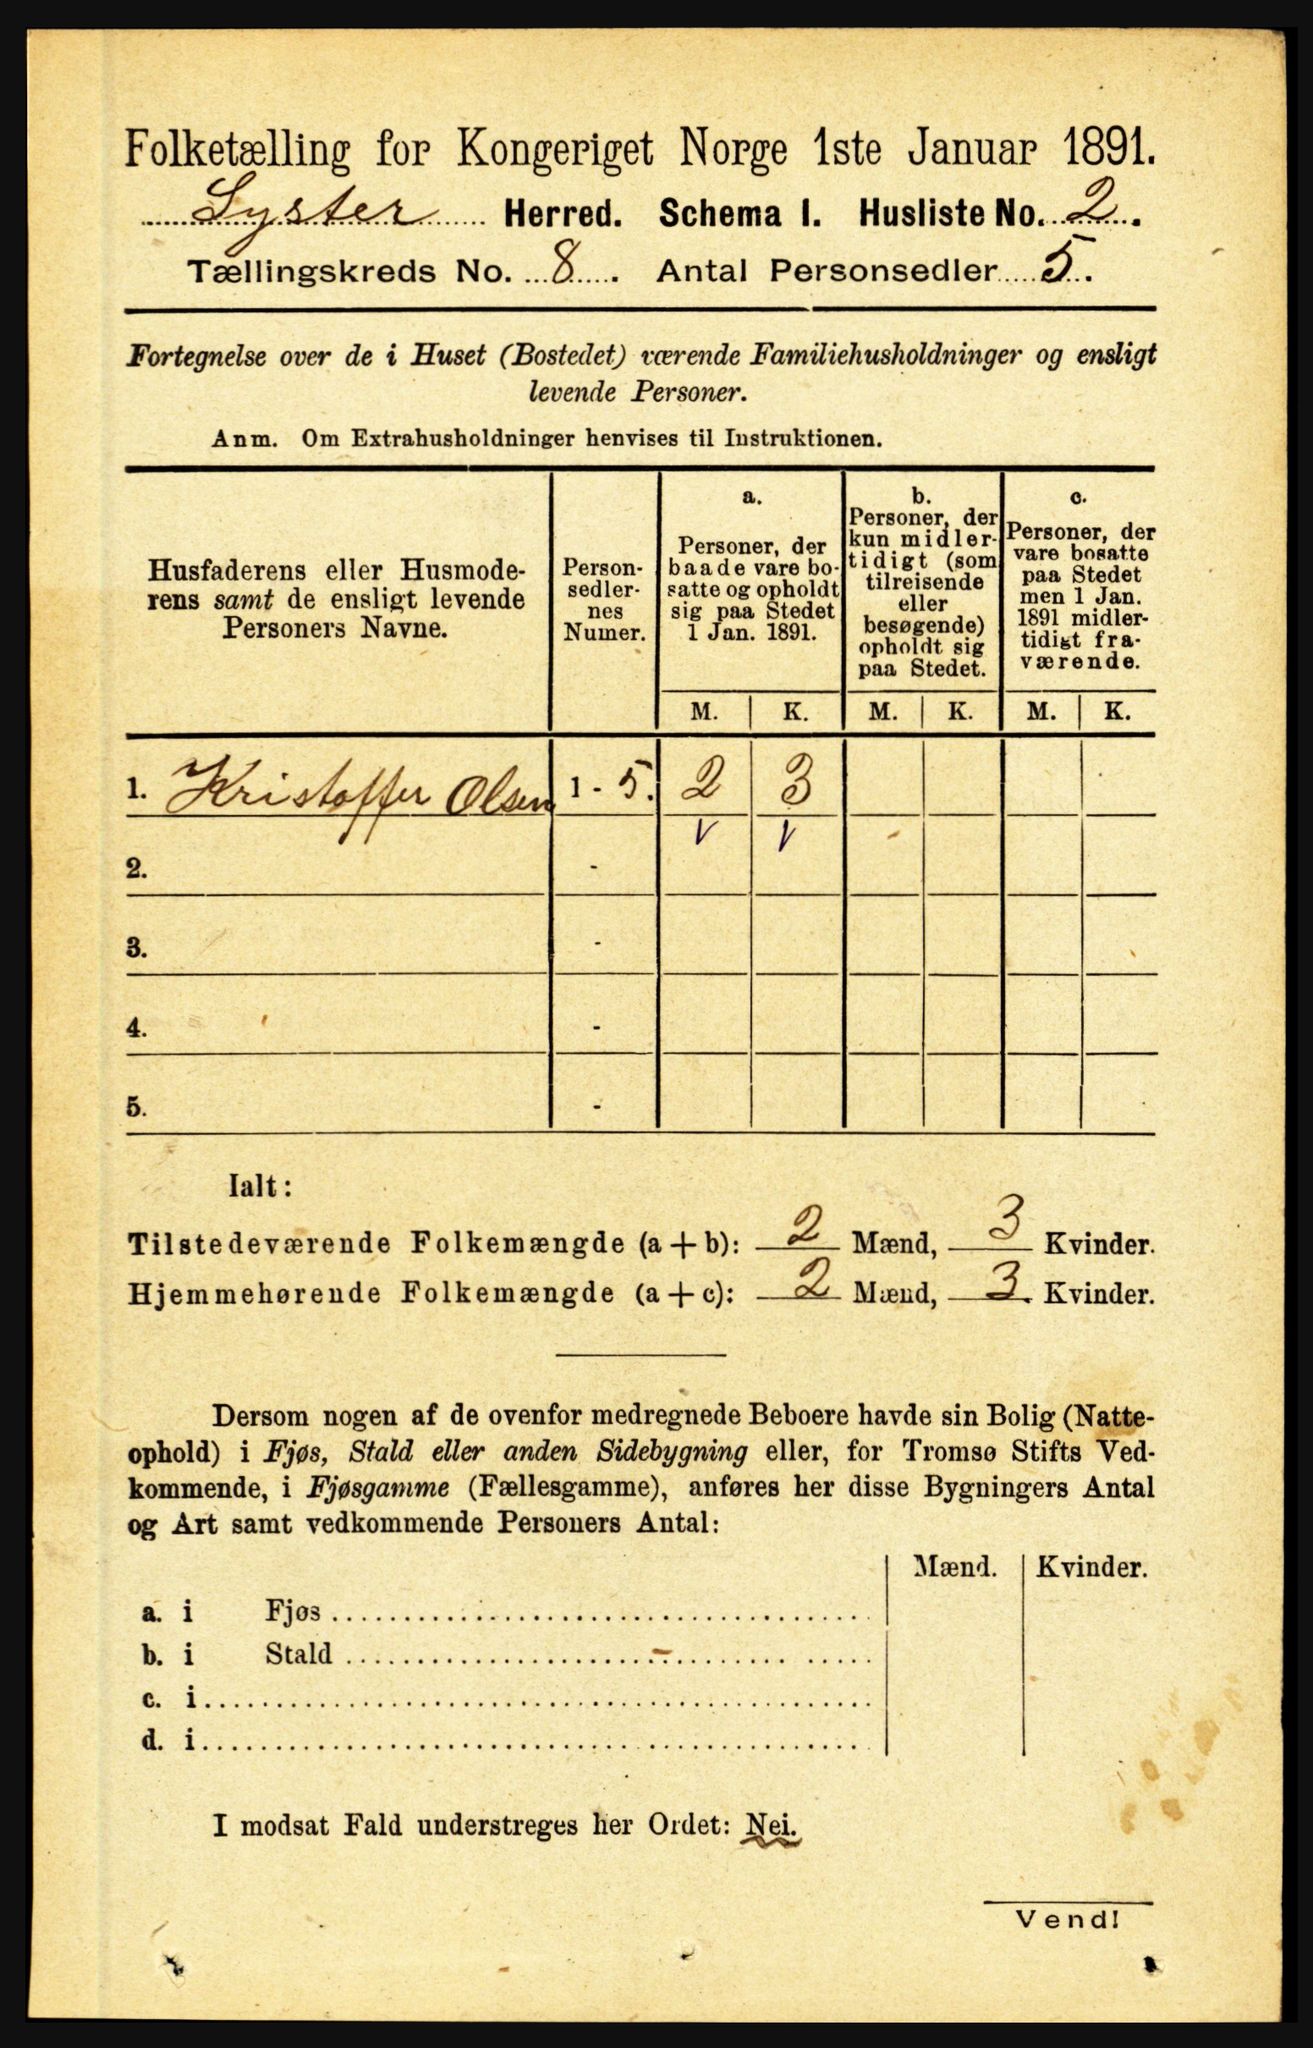 Folketælling for Kongeriget Norge 1ste Januar 1891.
Lyster Herred. Schema I. Husliste No. 2.
Tællingskreds No. 8. Antal Personsedler 5.
Fortegnelse over de i Huset (Bostedet) værende Familiehusholdninger og ensligt
levende Personer.
Anm. Om Extrahusholdninger henvises til Instruktionen.
Husfaderens eller Husmode-
rens samt de ensligt levende
Personers Navne.
Person-
sedler-
nes
Numer.
a.
Personer, der
baade vare bo-
satte og opholdt
sig paa Stedet
1 Jan. 1891.
b.
Personer, der
kun midler-
tidigt (som
tilreisende
eller
besøgende)
opholdt sig
paa Stedet.
c.
Personer, der
vare bosatte
paa Stedet
men 1 Jan.
1891 midler-
tidigt fra-
værende.
M. K. M. K. M. K.
1. Kristoffer Olsen 1 - 5. 2 3
v v
2. -
3. -
4. -
5. -
Ialt:
Tilstedeværende Folkemængde (a + b): 2 Mænd, 3 Kvinder.
Hjemmehørende Folkemængde (a + c): 2 Mænd, 3. Kvinder.
Dersom nogen af de ovenfor medregnede Beboere havde sin Bolig (Natte-
ophold) i Fjøs, Stald eller anden Sidebygning eller, for Tromsø Stifts Ved-
kommende, i Fjøsgamme (Fællesgamme), anføres her disse Bygningers Antal
og Art samt vedkommende Personers Antal:
Mænd. Kvinder.
a. i Fjøs
b. i Stald
c. i
d. i
I modsat Fald understreges her Ordet: Nei.
Vend!